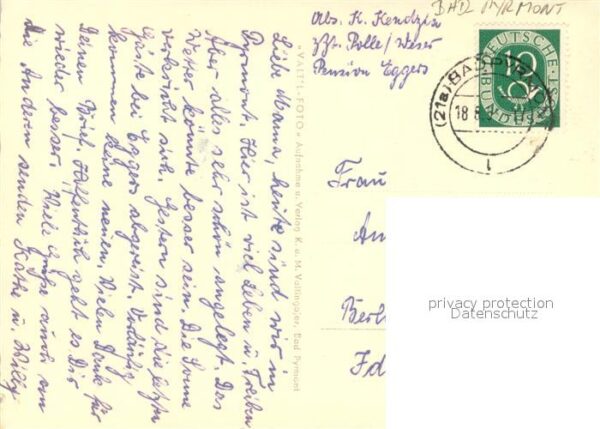 BAD PYRMONT
Abs. K. Kendzia
z. Zt. Polle/Weser
Pension Eggers
DEUTSCHE
BUNDESPOST
10
(21a) BAD PYRMONT
18.8.5
Liebe Mama, heute sind wir in
Pyrmont. Hier ist viel Leben u. Treiben
Aber alles sehr schön angelegt. Das
Wetter könnte besser sein. Die Sonne
verkriecht sich. Gestern sind die letzten
Gäste bei Eggers abgereist. Vorläufig
kommen keine neuen. Vielen Dank für
Deinen Brief. Hoffentlich geht es Dir
wieder besser. Viele Grüße auch an
die Anderen senden Käthe u. Willy
"VALTL-FOTO" Aufnahme u. Verlag K. u. M. Valtlingojer, Bad Pyrmont
Frau
An
Berl
privacy protection
Datenschutz